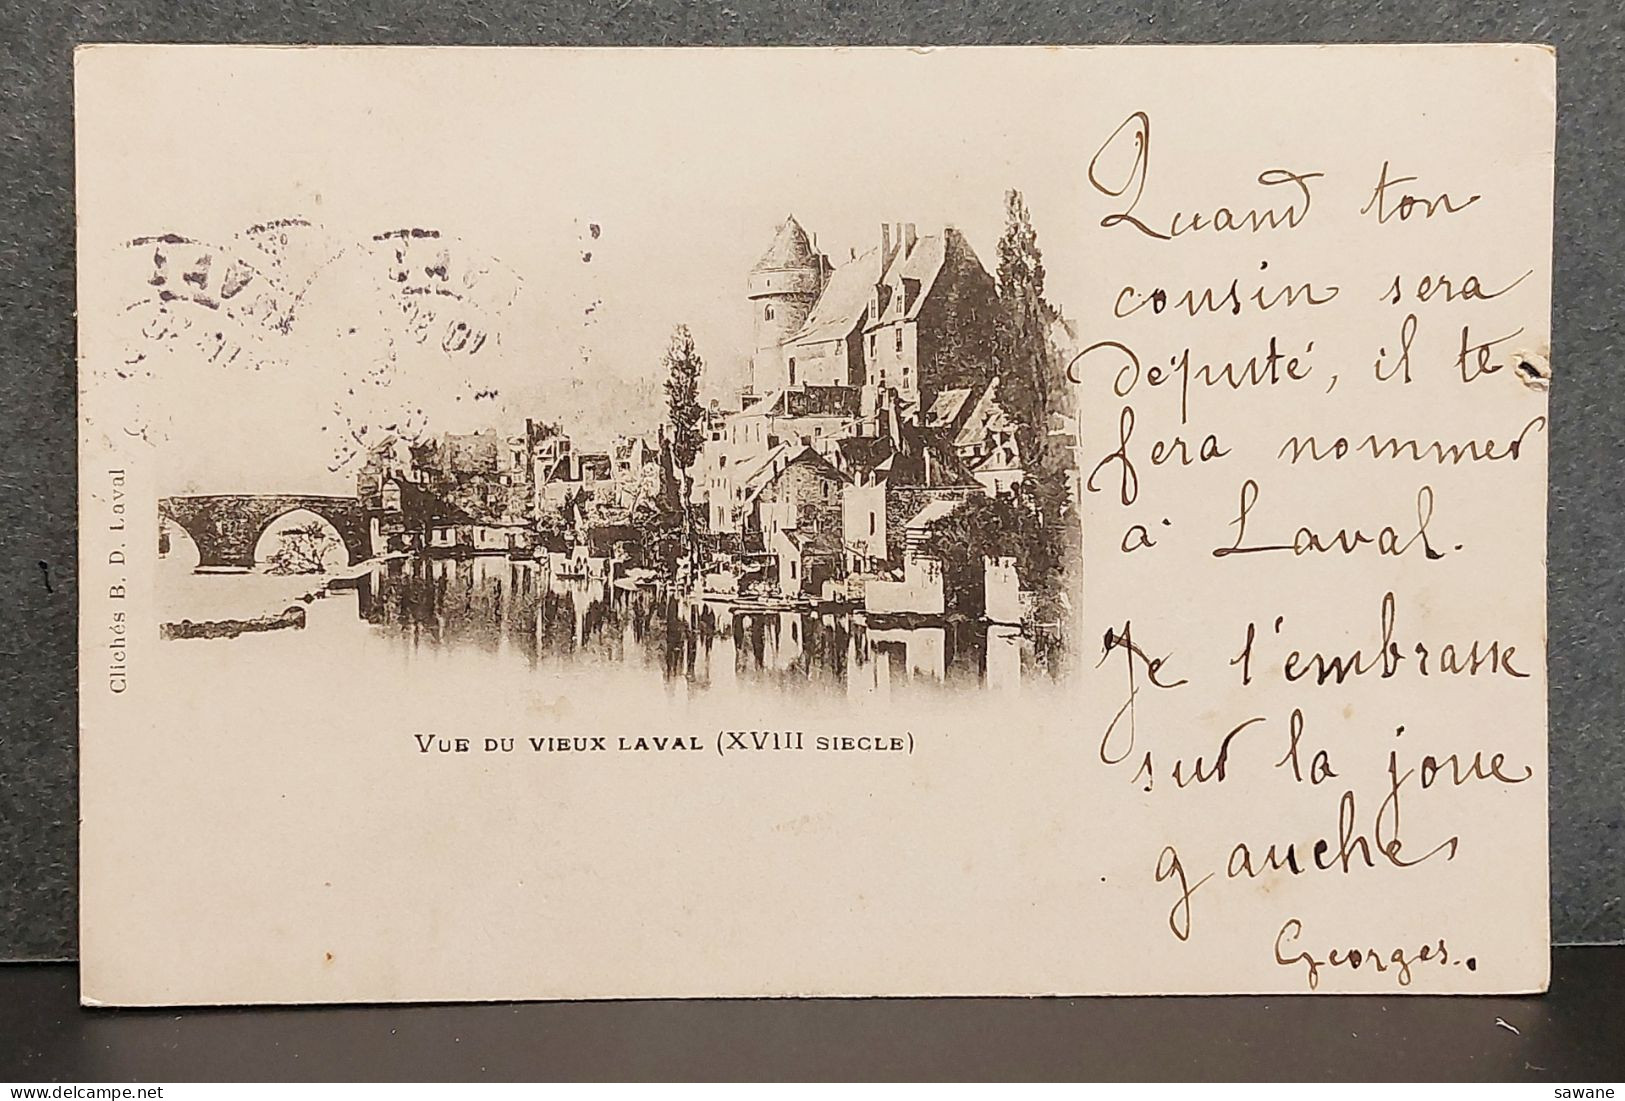 Quand ton
cousin sera
député, il te
fera nommer
à Laval.
Je t'embrasse
sur la joue
gauche
Georges.
Clichés B. D. Laval
VUE DU VIEUX LAVAL (XVIII SIECLE)
sawane